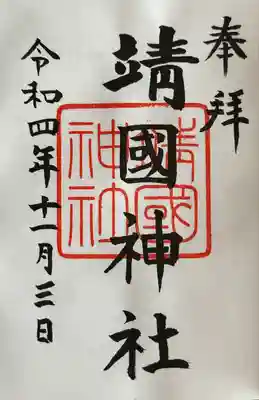 奉拝
靖國神社
靖國神社
令和四年十一月三日